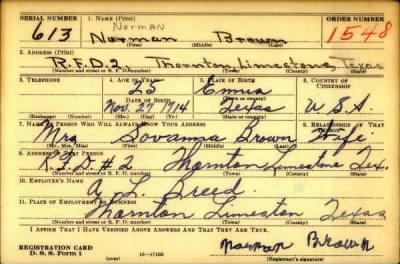 SERIAL NUMBER 1. NAME (Print) ORDER NUMBER
Norman
613 Norman Brown 1548
(First) (Middle) (Last)
2. ADDRESS (Print)
R.F.D.2 Thornton, Limestone, Texas
(Number and street or R. F. D. number) (Town) (County) (State)
3. TELEPHONE 4. AGE IN YEARS 5. PLACE OF BIRTH 6. COUNTRY OF CITIZENSHIP
25
DATE OF BIRTH (Town or county)
Nov. 27 1914 Texas U.S.A.
(Exchange) (Number) (Mo.) (Day) (Yr.) (State or country)
7. NAME OF PERSON WHO WILL ALWAYS KNOW YOUR ADDRESS 8. RELATIONSHIP OF THAT PERSON
Mrs. Brown Wife
(Mr., Mrs., Miss) (First) (Middle) (Last)
9. ADDRESS OF THAT PERSON
R.F.D. #2 Thornton Limestone Tex.
(Number and street or R. F. D. number) (Town) (County) (State)
10. EMPLOYER'S NAME
L. Breed.
11. PLACE OF EMPLOYMENT OR BUSINESS
Thornton Limeston Texas
(Number and street or R. F. D. number) (Town) (County) (State)
I AFFIRM THAT I HAVE VERIFIED ABOVE ANSWERS AND THAT THEY ARE TRUE.
REGISTRATION CARD
D. S. S. Form 1 (over) Norman Brown
(Registrant's signature)